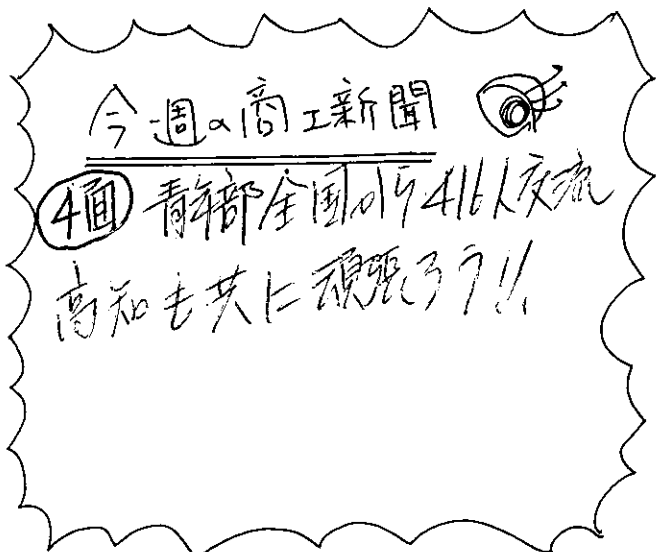 今週の商工新聞
4面 青年部全国から416人交流
高知も共に頑張ろう!!